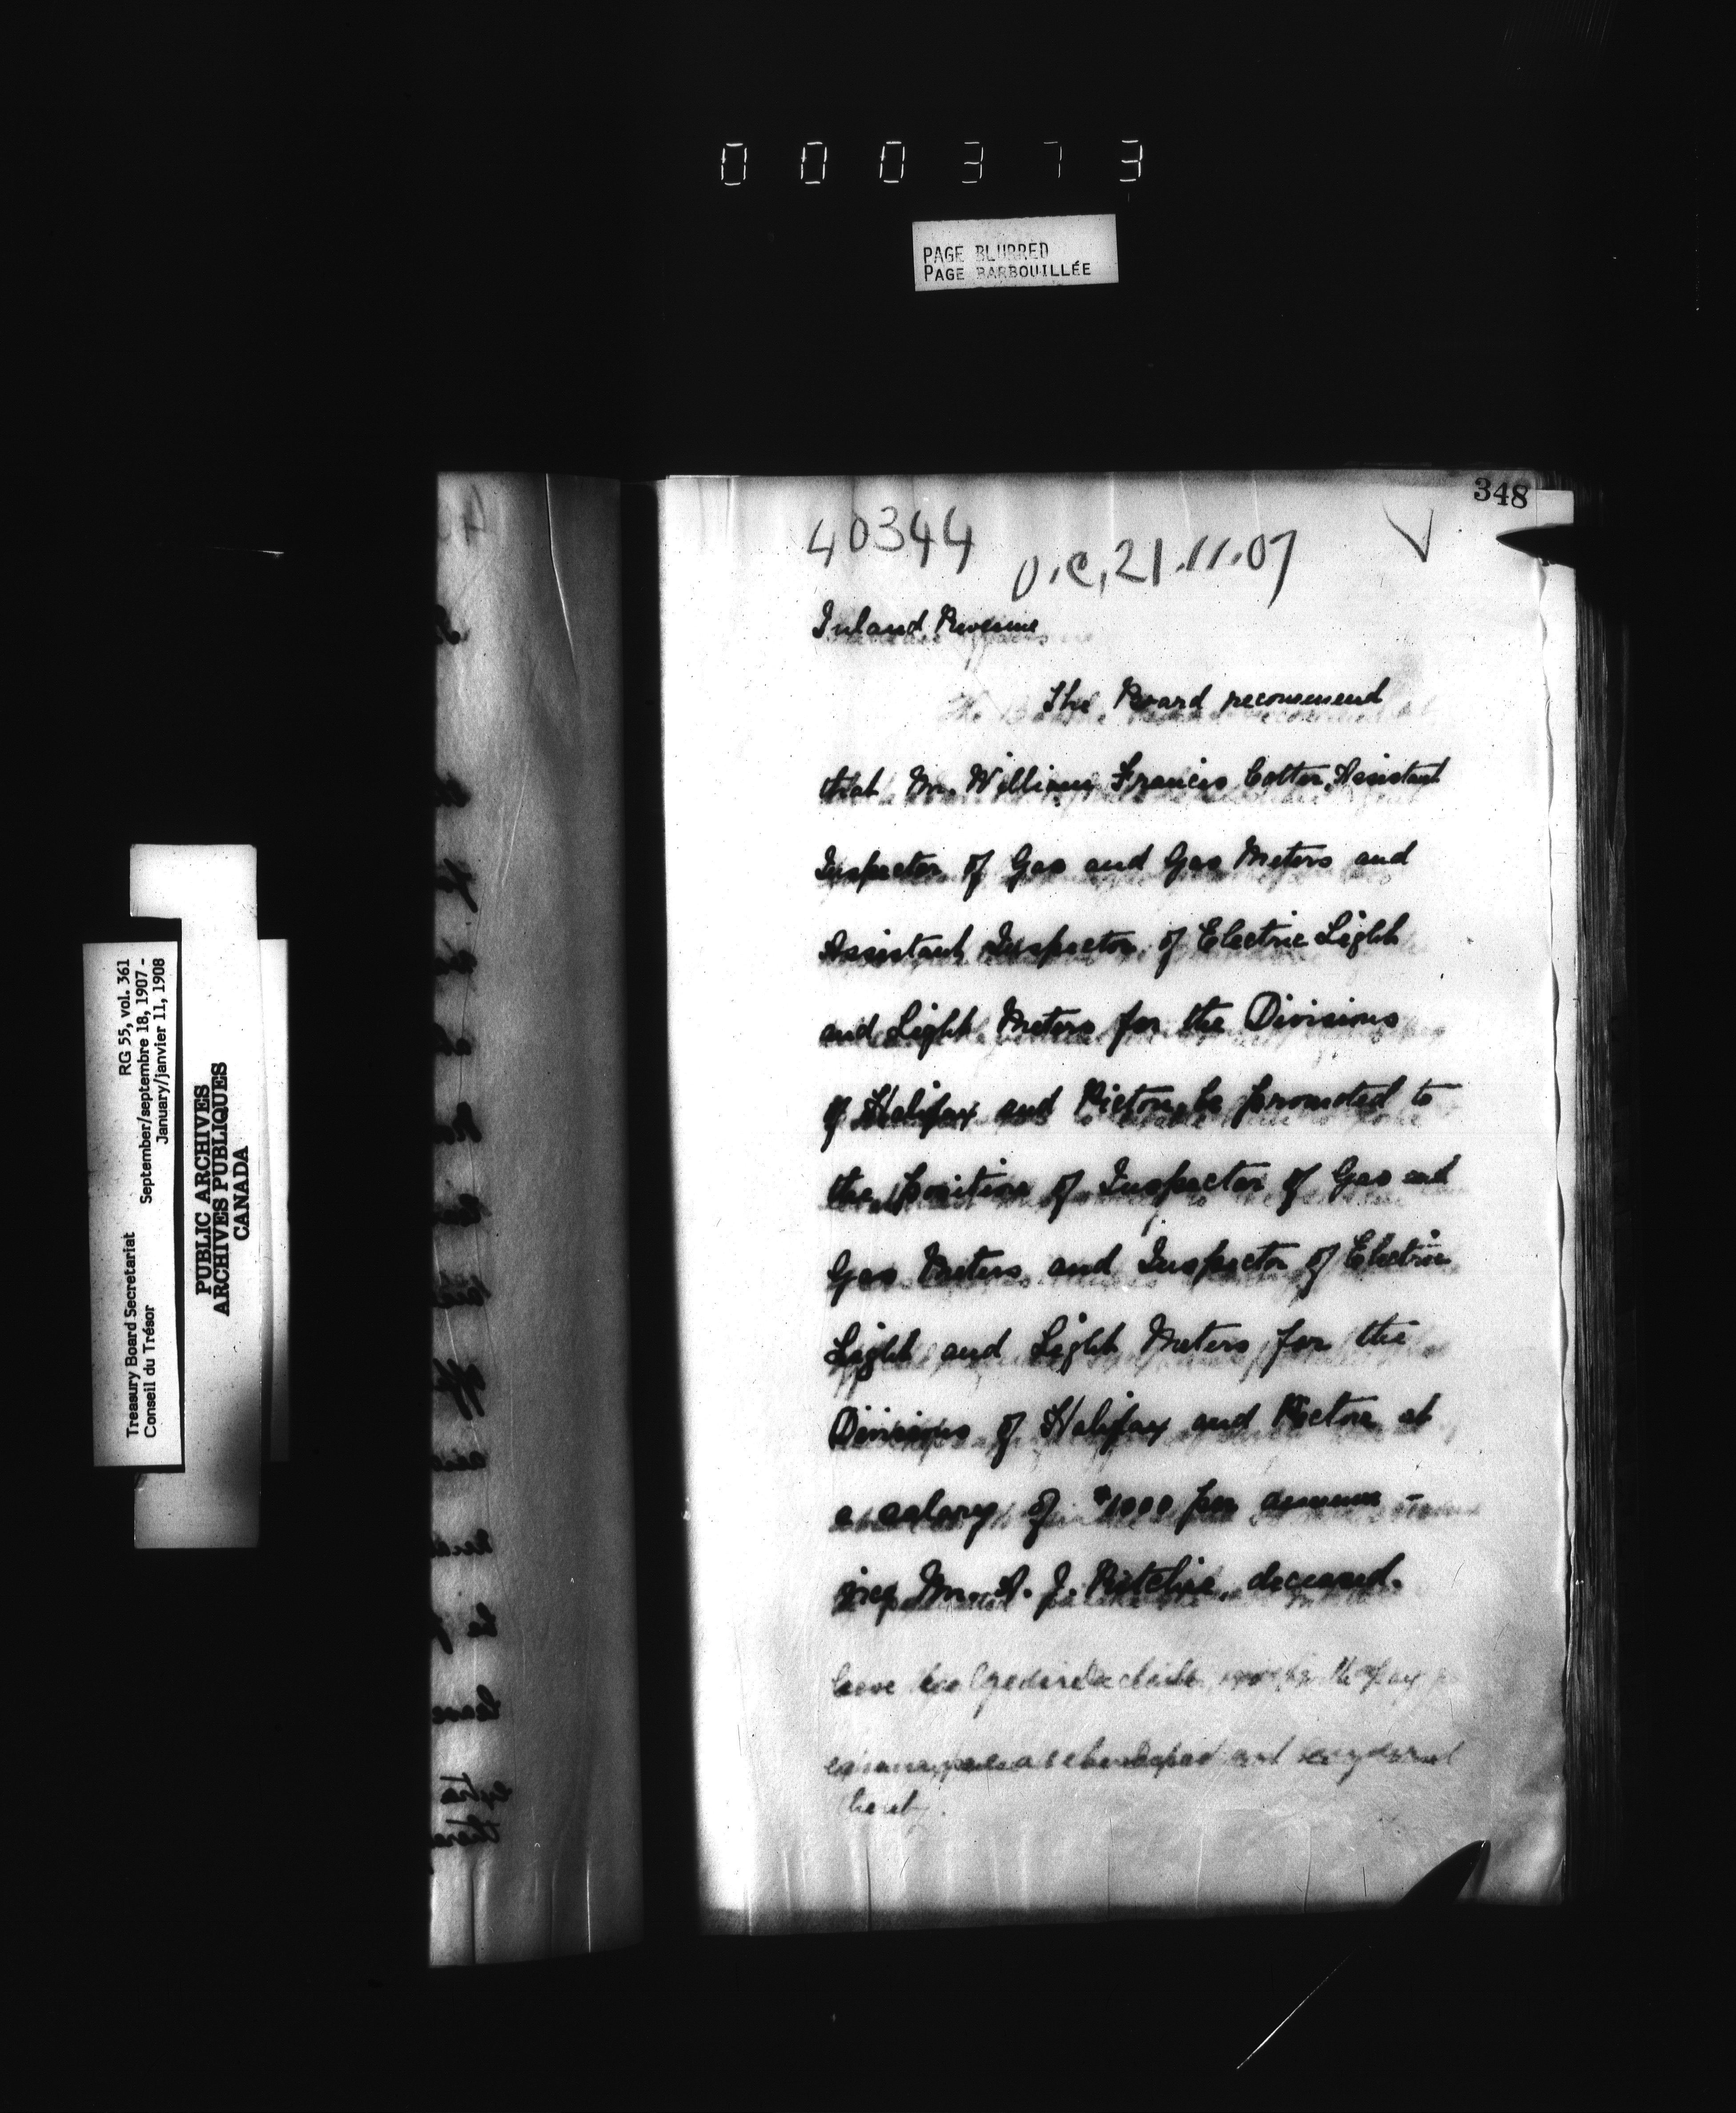 000373
PAGE BLURRED
PAGE BARBOUILLÉE
348
40344
O.C. 21.11.07
Inland Revenue
The Board recommend
that Mr. William Francis Cotter, Assistant
Inspector of Gas and Gas Meters and
Assistant Inspector of Electric Light
and Light Meters for the Divisions
of Halifax and Pictou, be promoted to
the position of Inspector of Gas and
Gas Meters and Inspector of Electric
Light and Light Meters for the
Divisions of Halifax and Pictou at
a salary of $1000 per annum -
vice Mr. A. J. Ritchie, deceased.
Treasury Board Secretariat RG 55, vol. 361
Conseil du Trésor September/septembre 18, 1907 -
January/janvier 11, 1908
PUBLIC ARCHIVES
ARCHIVES PUBLIQUES
CANADA